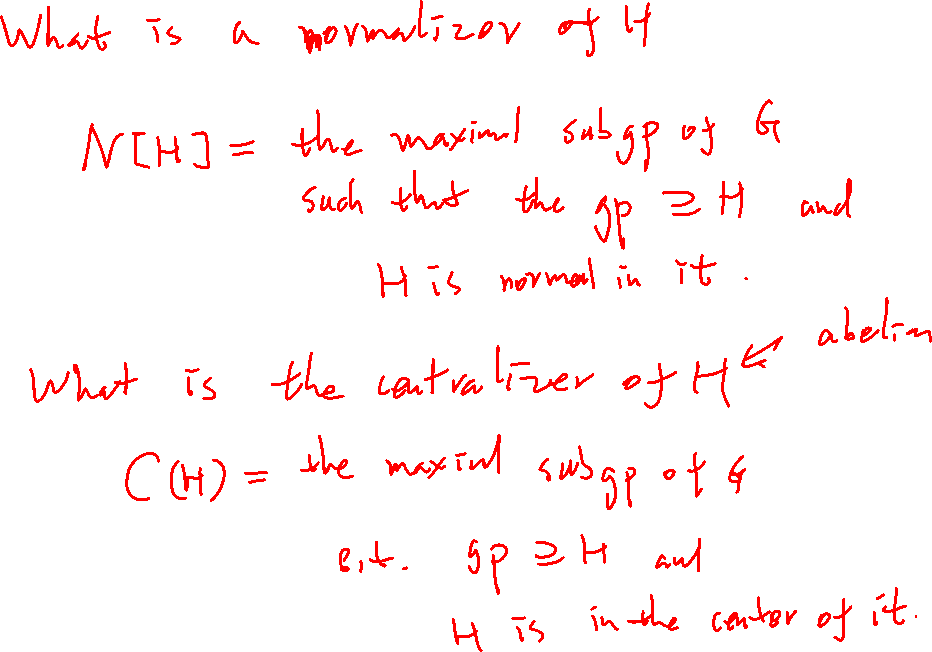 What is a normalizor of H
N[H] = the maximal subgp of G
such that the gp ≥ H and
H is normal in it.
What is the centralizer of H ← abelian
C(H) = the maximal subgp of G
s.t. gp ≥ H and
H is in the center of it.